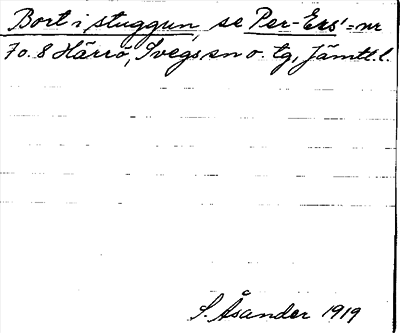 Bort i stuggun, se Per-Ers'=nr
7 o. 8 Härrö, Svegs sn o. tg, Jämtl. l.
S. Åsander 1919